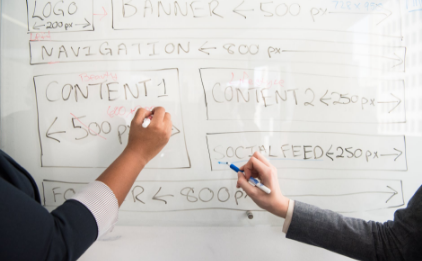 LOGO
200 px
BANNER 500 px
NAVIGATION 800 px
CONTENT 1
500 px
CONTENT 2 250 px
SOCIAL FEED 250 px
800 px